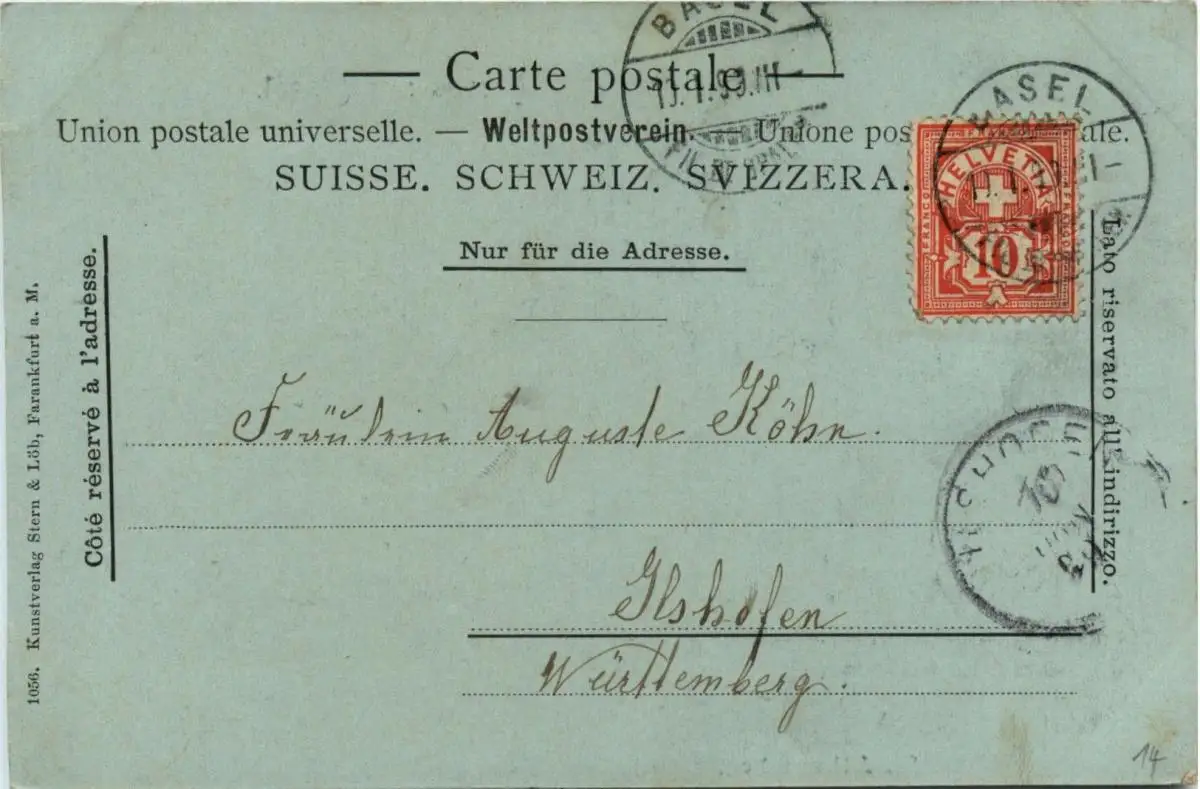 Carte postale
Union postale universelle. — Weltpostverein. — Unione pos ale.
SUISSE. SCHWEIZ. SVIZZERA.
Nur für die Adresse.
Côté réservé à l'adresse.
1056. Kunstverlag Stern & Löb, Farankfurt a. M.
Lato riservato all' indirizzo.
BASEL
BASEL
FRANCO
HELVETIA
10
Fräulein Auguste Köhn.
Ilshofen
Württemberg.
14